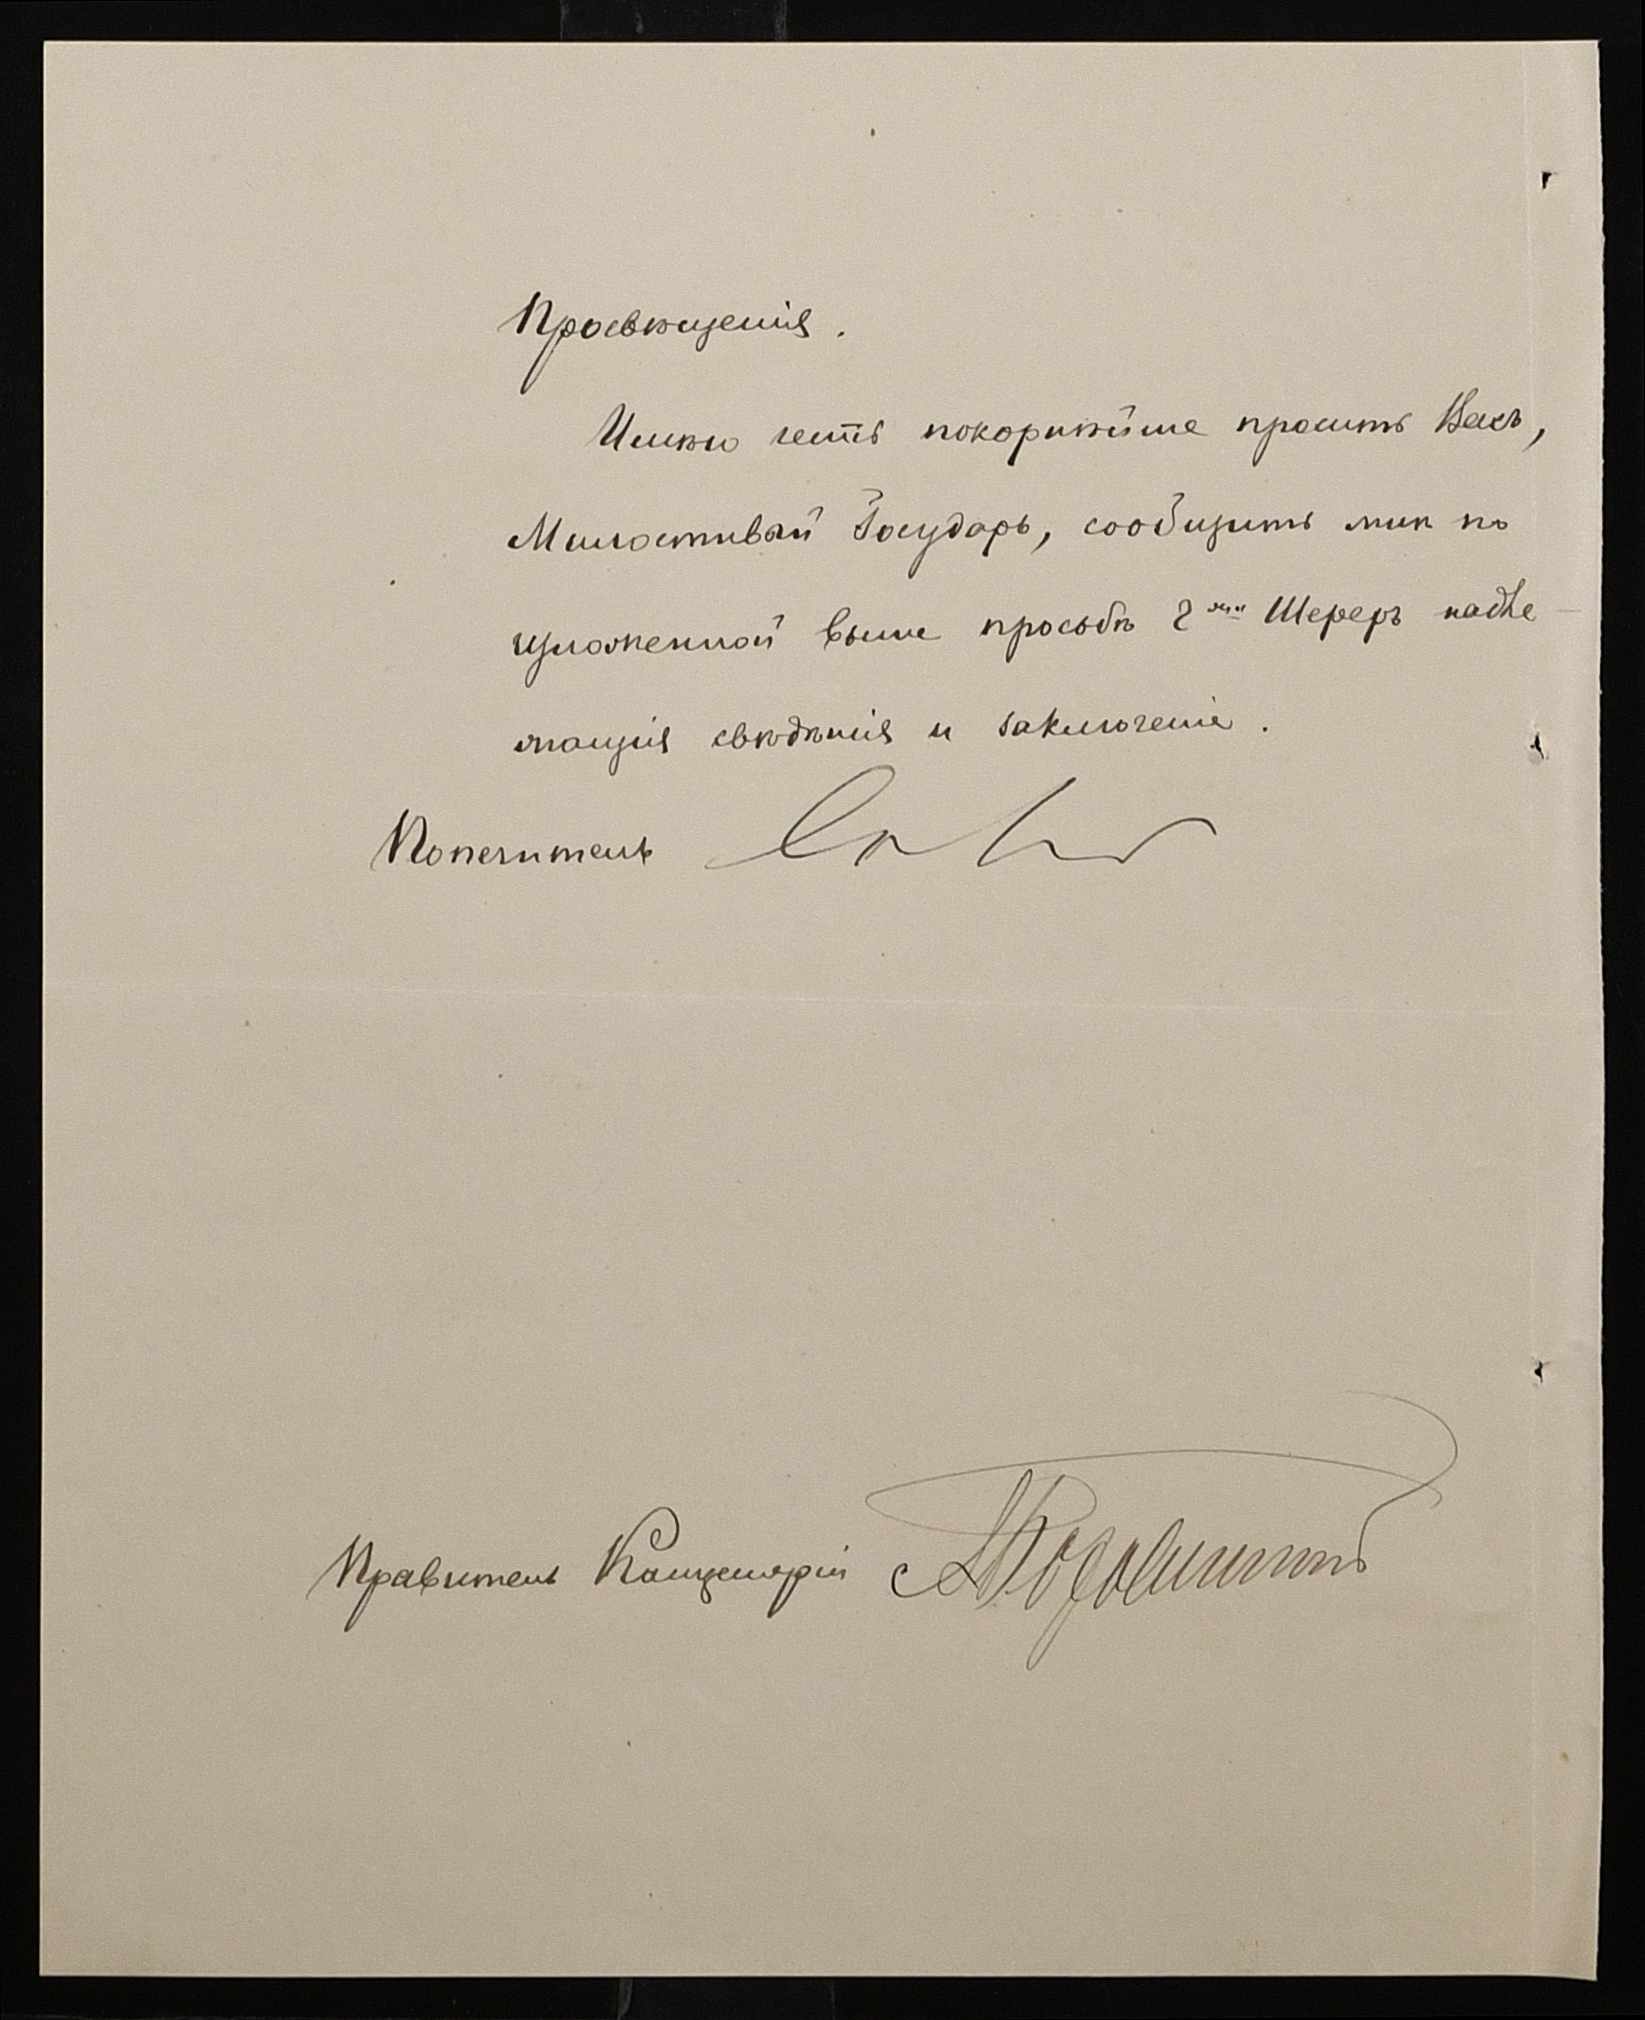 Просвѣщенія.
Имѣю честь покорнѣйше просить Васъ,
Милостивый Государь, сообщить мнѣ по
изложенной выше просьбѣ г-жи Шереръ надле-
жащія свѣдѣнія и заключеніе.
Попечитель
Правитель Канцеляріи